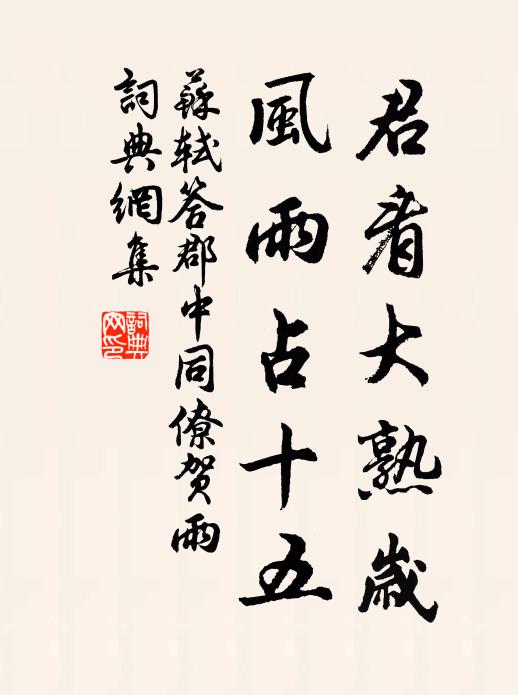 君看大熟歲
風雨占十五
蘇軾答郡中同僚賀雨
詞典網集
詞典
网印